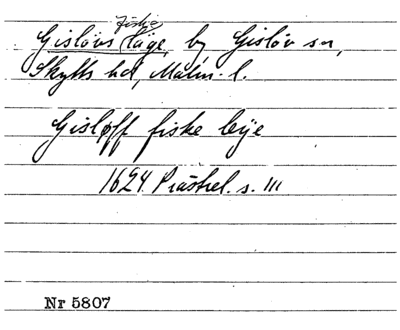 fiske
Gislövs läge, by Gislöv sn,
Skytts hd, Malm. l.
Gisløff fiske leÿe
1624 Prästrel. s. 111
Nr 5807